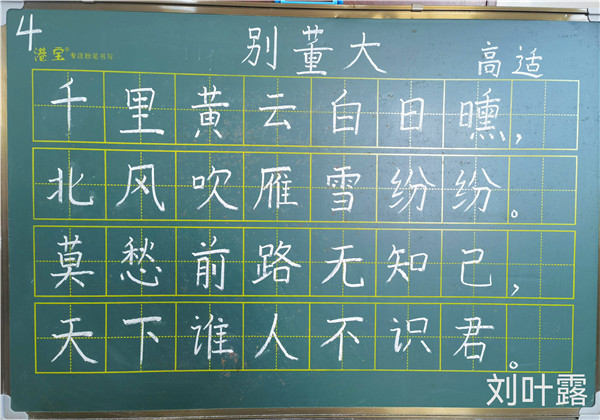 4
别董大
港宝® 专注粉笔书写
高适
千里黄云白日曛，
北风吹雁雪纷纷。
莫愁前路无知己，
天下谁人不识君。
刘叶露